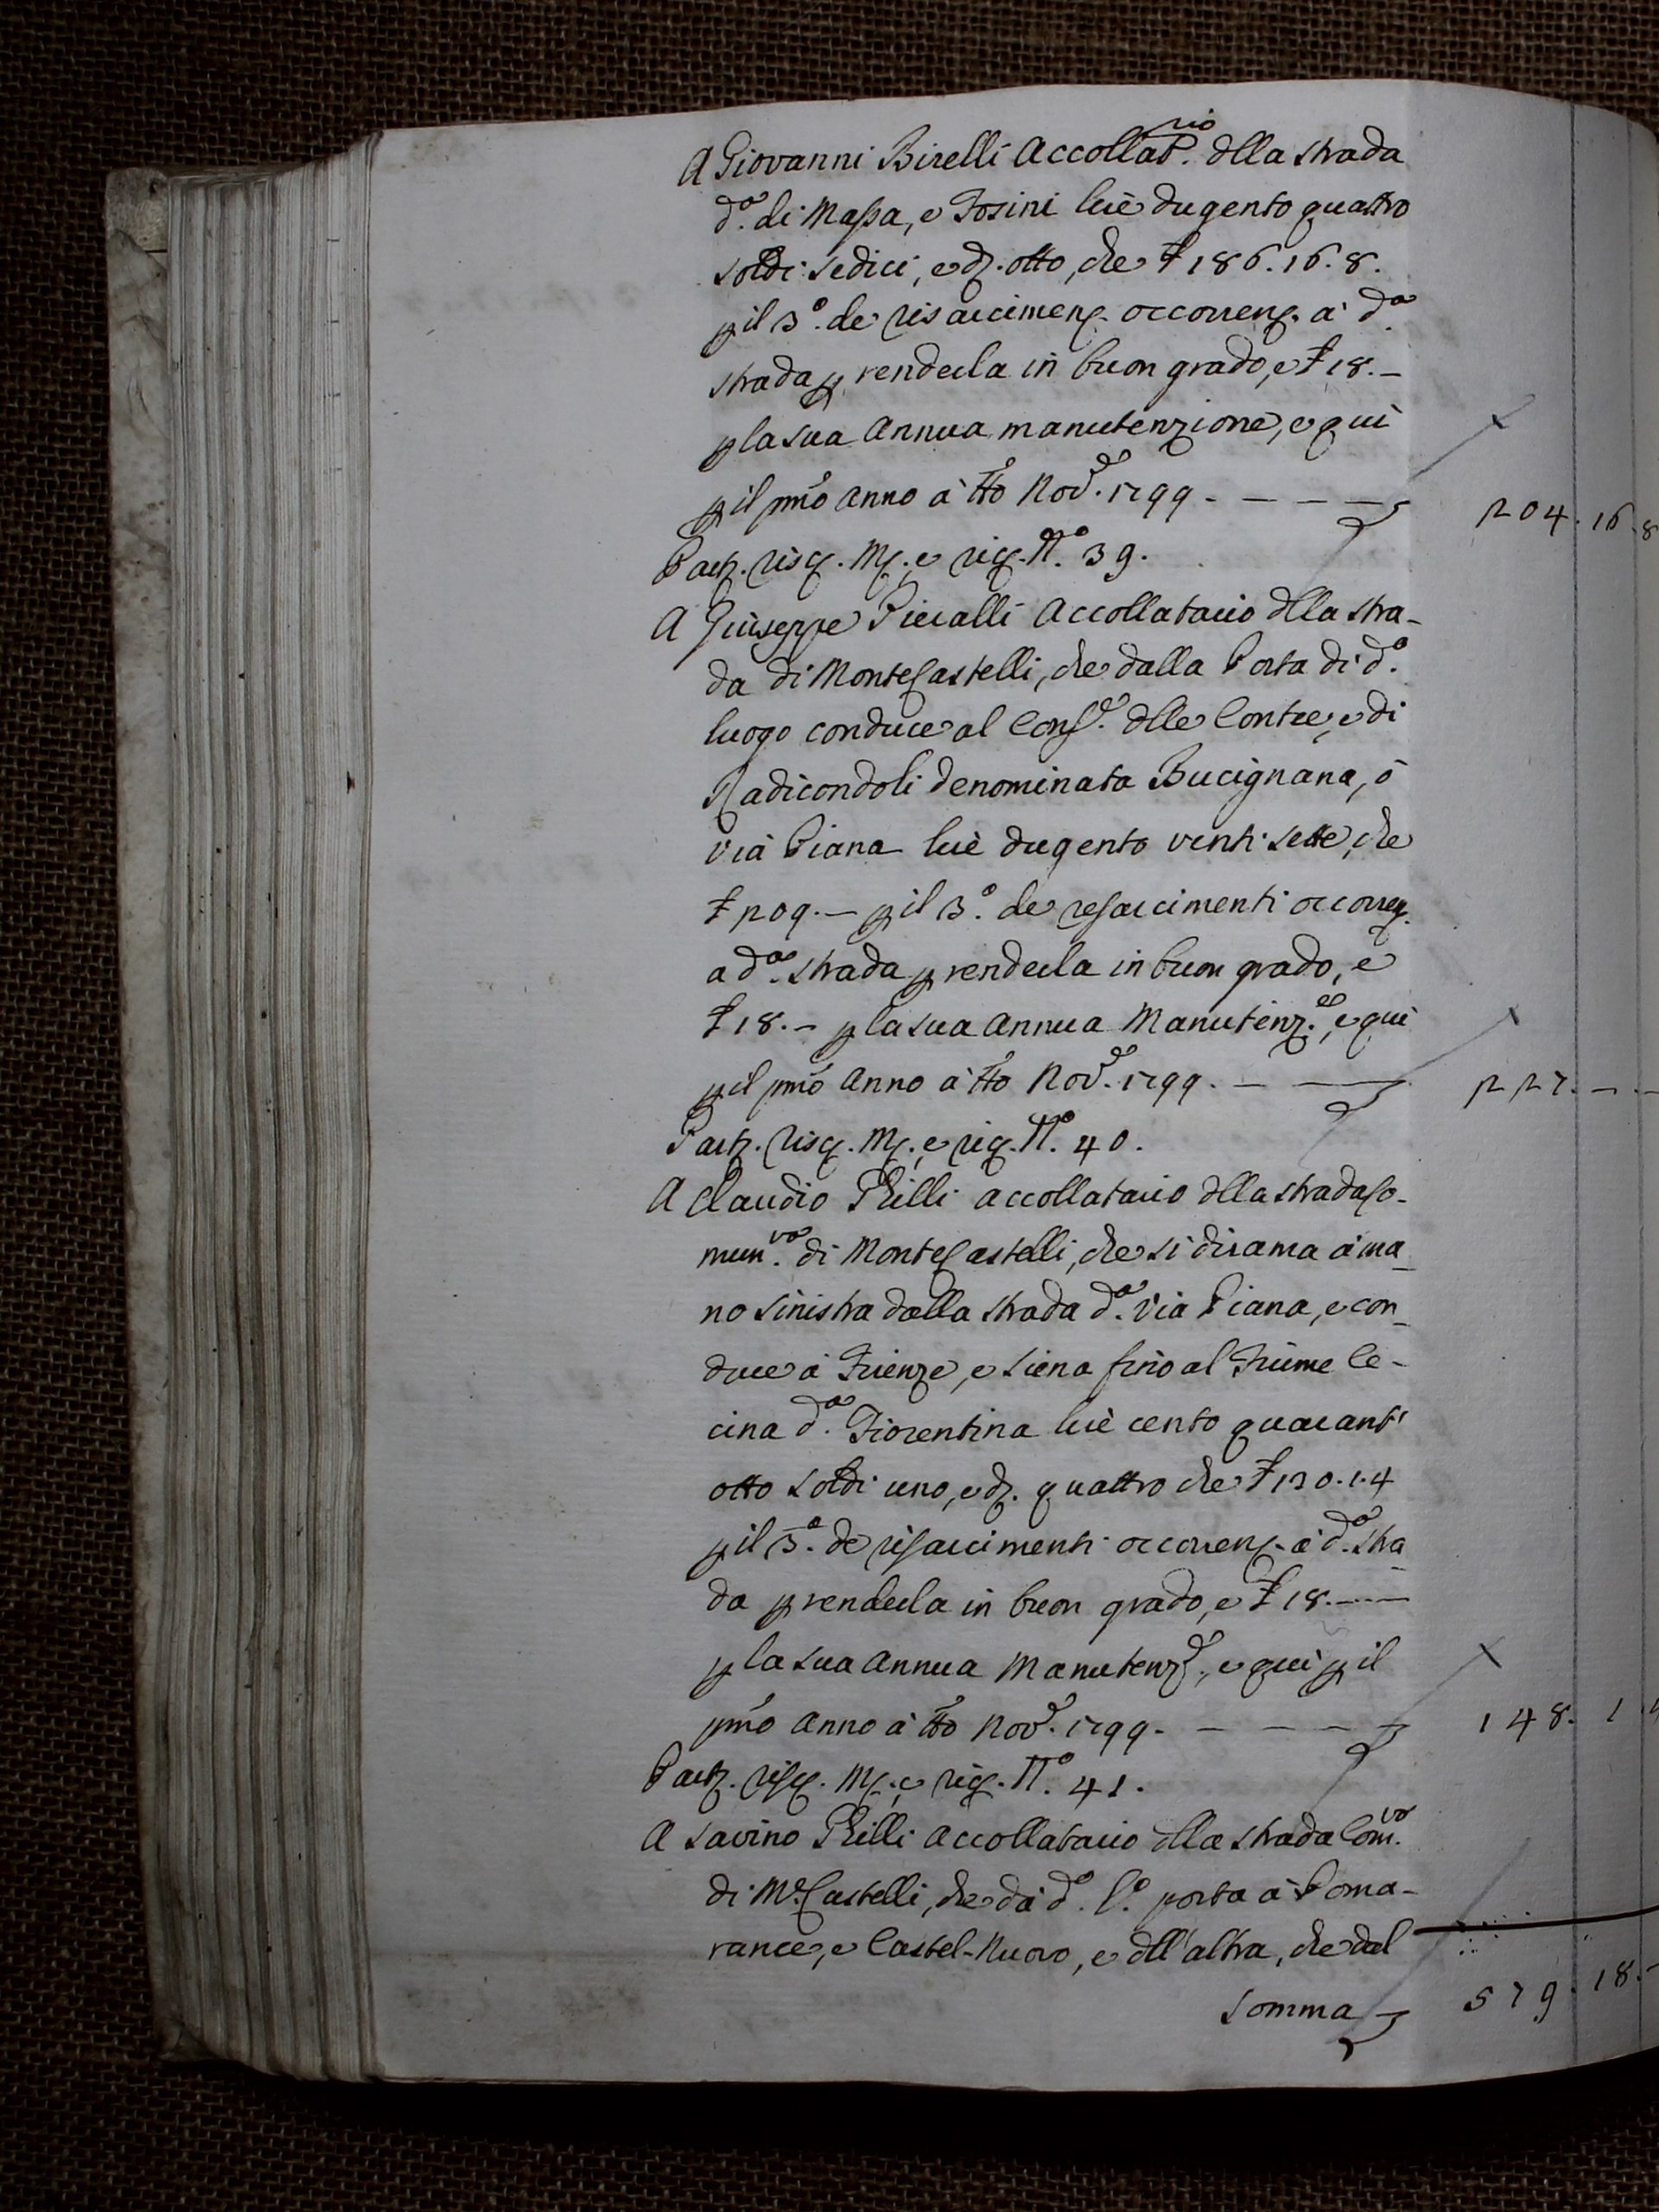 A Giovanni Birelli Accollat.rio dlla strada
d.a di Massa, e Fosini lire dugento quattro
soldi sedici, e d. otto, che £ 186.16.8.
p il 3.o de risarcimen. occorren. a d.a
strada p renderla in buon grado, e £ 18.—
p la sua Annua manutenzione, e qui
p il pmo Anno a tto Nov.e 1799. — — — 204.16.8
Part. risc. M. e rig. N.o 39.
A Giuseppe Pieralli Accollatario dlla stra-
da di MonteCastelli, che dalla Porta di d.o
luogo conduce al Conf.e dlle Contee, e di
Radicondoli denominata Bucignana, ò
via Piana lire dugento venti sette, che
£ 209.— p il 3.o de resarcimenti occorren.
a d.a strada p renderla in buon grado, e
£ 18.— p la sua Annua Manutenz.e, e qui
p il pmo Anno a tto Nov.e 1799. — — 227.—.—
Part. risc. M. e rig. N.o 40.
A Claudio Rilli accollatario dlla strada Co-
mun.va di MonteCastelli, che si dirama a ma-
no sinistra dalla strada d.a Via Piana, e con-
duce a Firenze, e Siena fino al Fiume Ce-
cina d.a Fiorentina lire cento quarant'
otto soldi uno, e d. quattro che £ 130.1.4
p il 3.o de risarcimenti occorren. a d.a stra-
da p renderla in buon grado, e £ 18.——
p la sua Annua Manutenz.e, e qui p il
pmo Anno a tto Nov.e 1799. — — — — 148.1.4
Part. risc. M. e rig. N.o 41.
A Savino Rilli Accollatario dlla strada Com.va
di M.e Castelli, che da d.o C.o porta a Poma-
rance, e Castel-Nuovo, e dll'altra, che dal
Somma 579.18.—